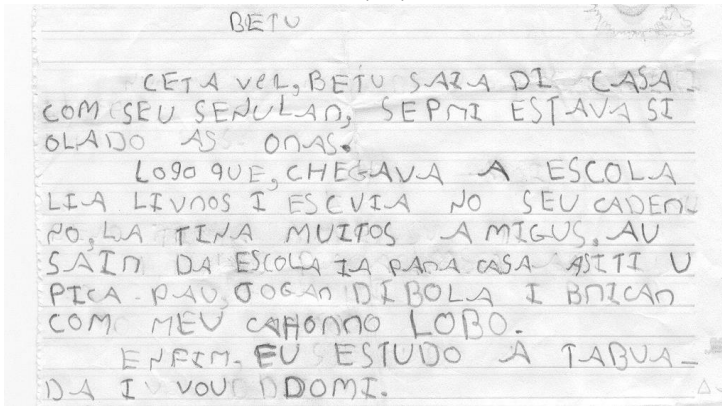 BETU
CETA VEL, BETU SAIA DI CASA
COM SEU SENULAR, SEPRI ESTAVA SI
OLADO AS ORAS.
LOGO QUE, CHEGAVA A ESCOLA
LIA LIVROS I ESCVIA NO SEU CADER-
NO, LA TINA MUITOS AMIGUS, AU
SAIR DA ESCOLA IA PARA CASA ASITI U
PICA-PAU, JOGAR DIBOLA I BRICAR
COM MEU CAHORRO LOBO.
ENFIM. EU ESTUDO A TABUA-
DA I VOU DDOMI.